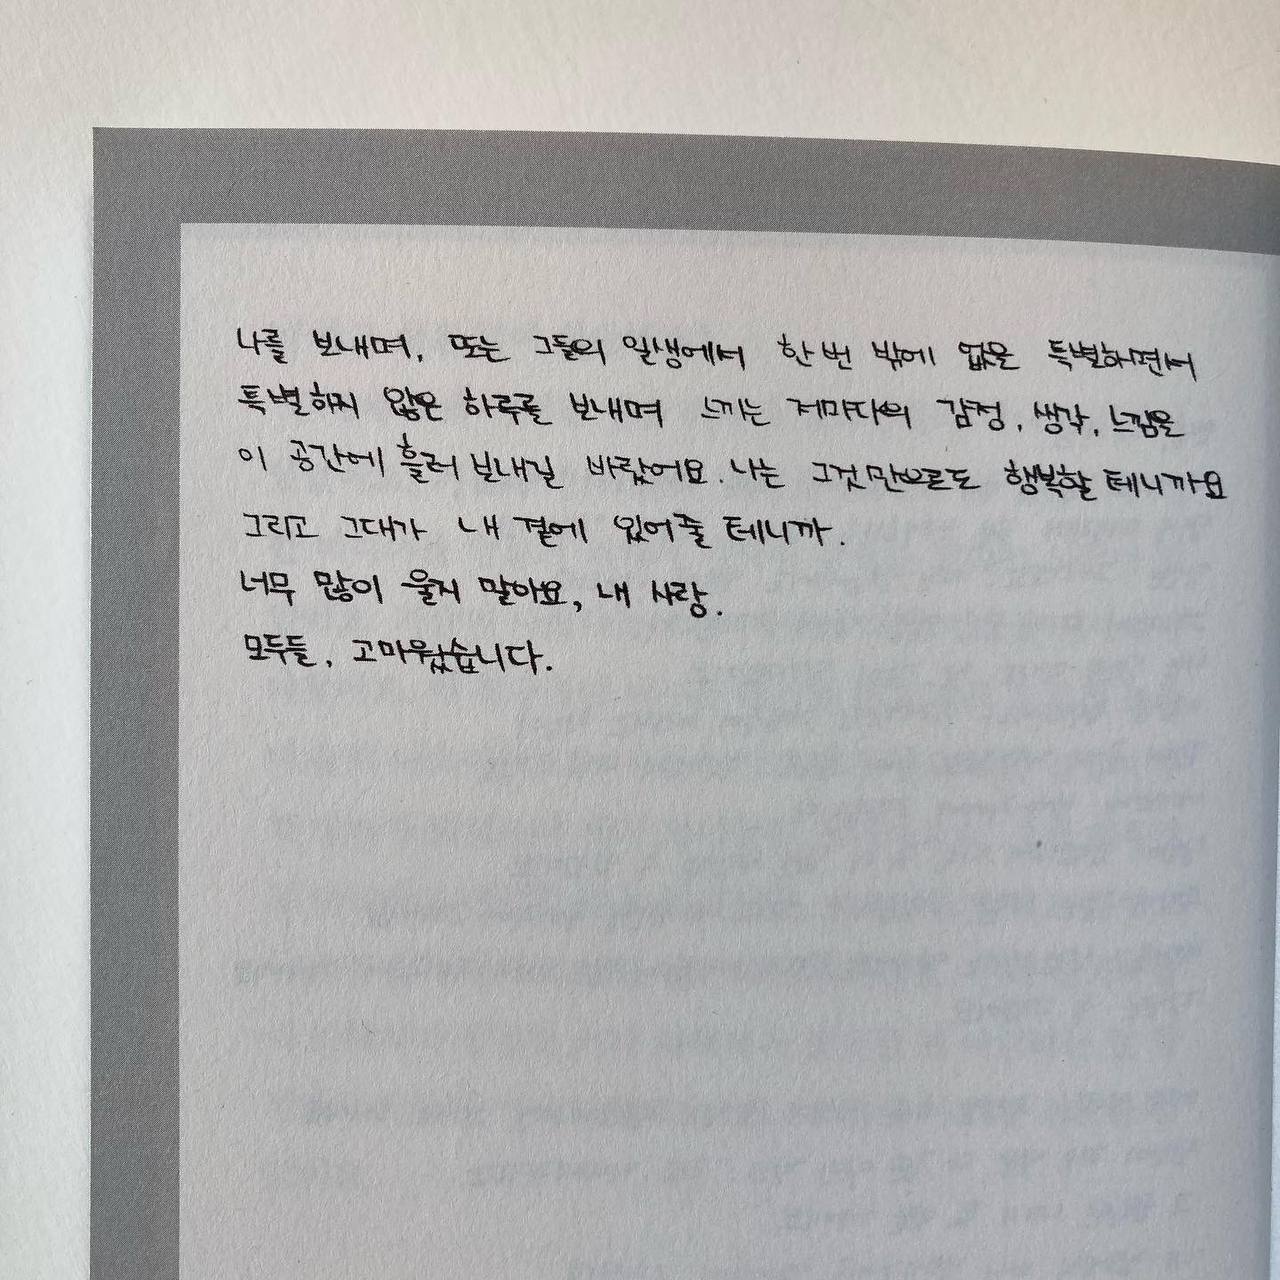 나를 보내며, 또는 그들의 일생에서 한 번 밖에 없은 특별하면서
특별하지 않은 하루를 보내며 느끼는 저마다의 감정, 생각, 느낌을
이 공간에 흘려 보내길 바랐어요. 나는 그것만으로도 행복할 테니까요
그리고 그대가 내 곁에 있어줄 테니까.
너무 많이 울지 말아요, 내 사랑.
모두들, 고마웠습니다.